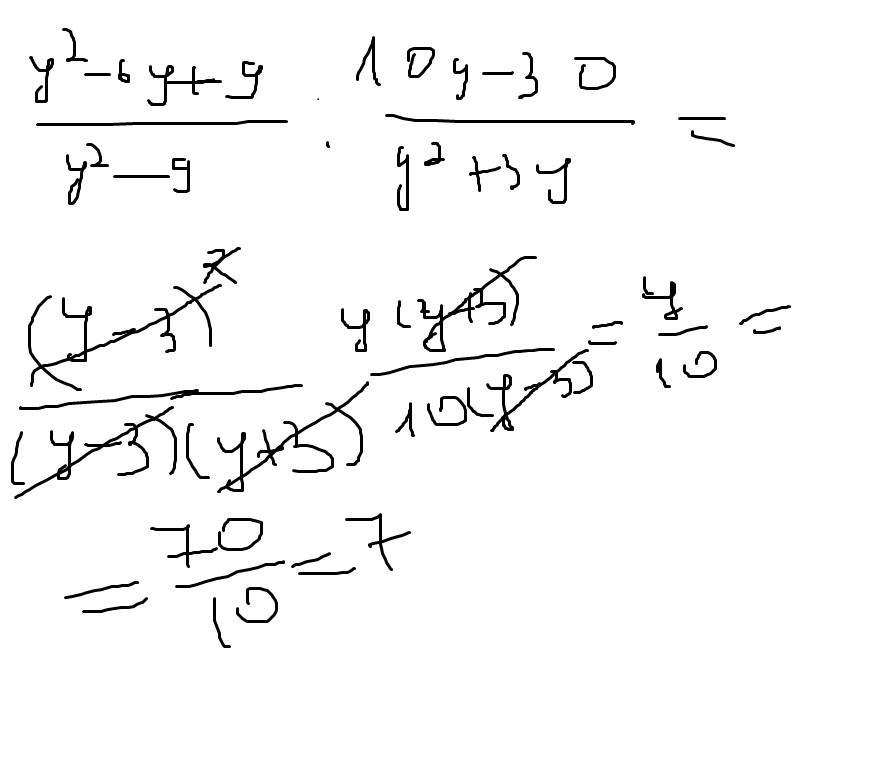 (y² - 6y + 9)/(y² - 9) : (10y - 30)/(y² + 3y) =
(y - 3)²/((y - 3)(y + 3)) y(y + 3)/(10(y - 3)) = y/10 =
= 70/10 = 7